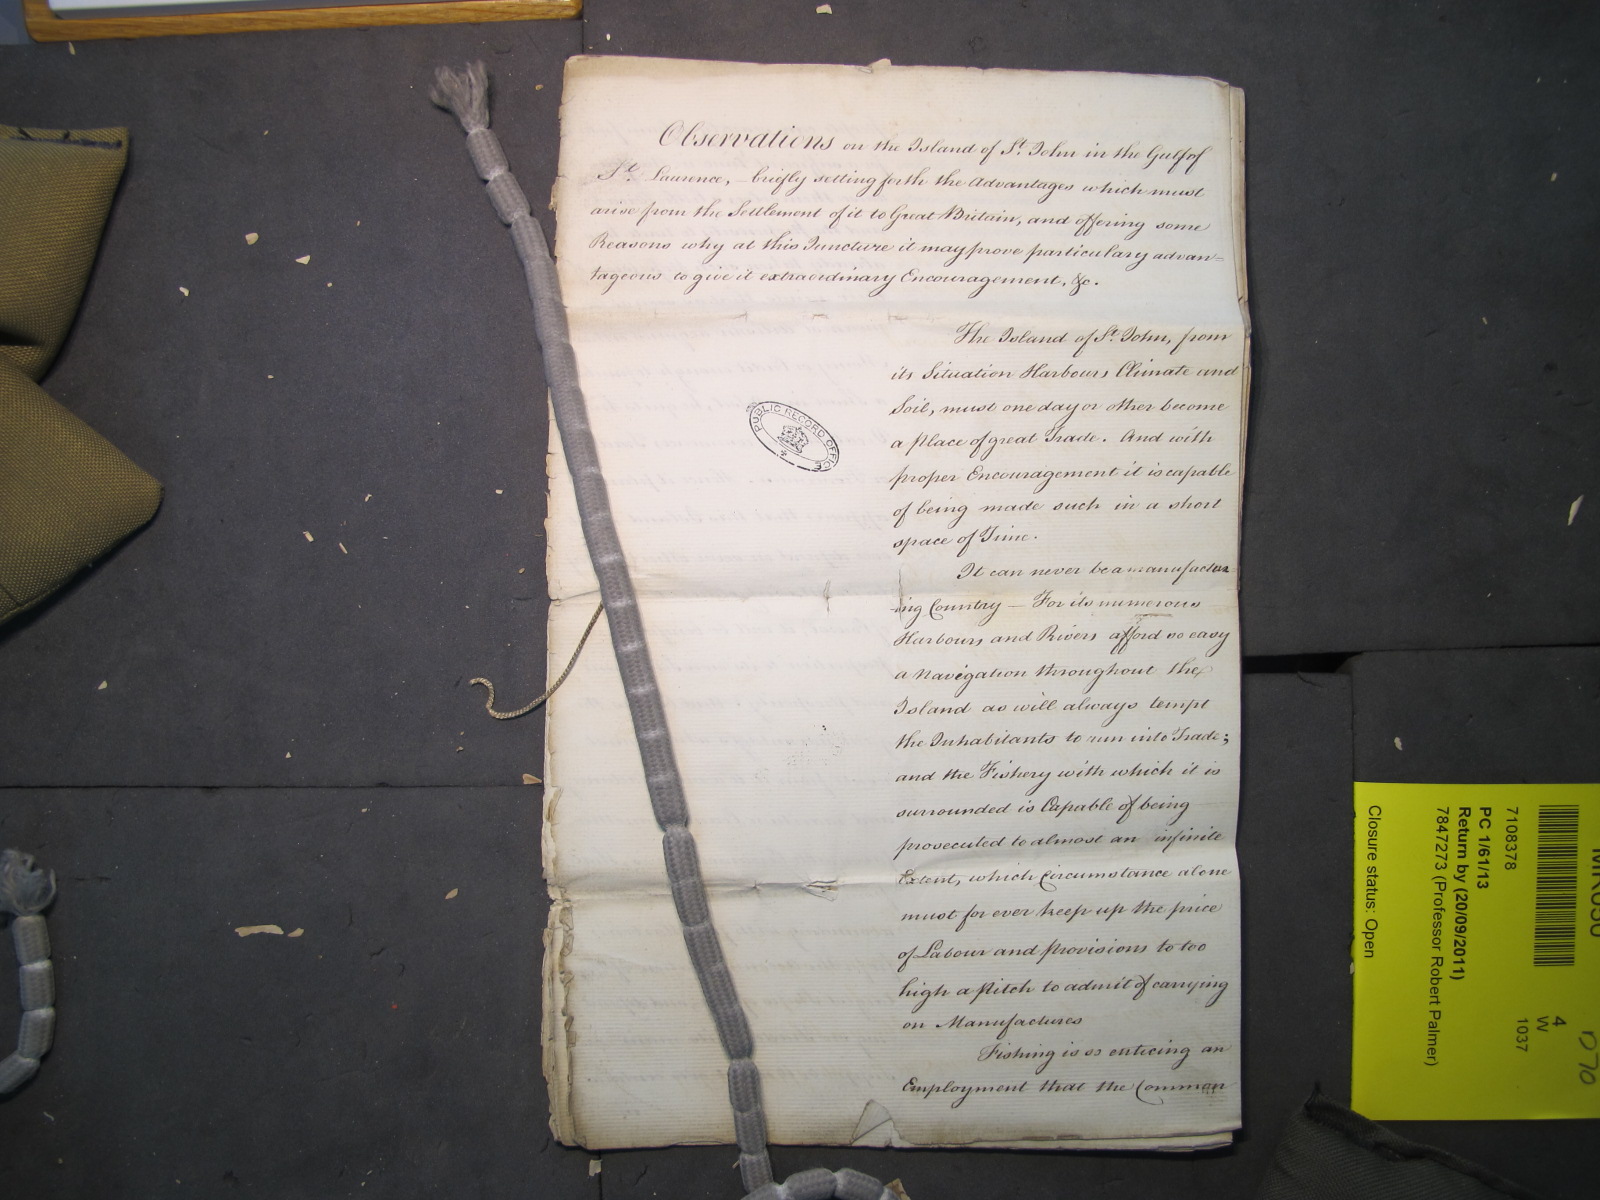 Observations on the Island of St. John in the Gulf of
St. Laurence, – briefly setting forth the Advantages which must
arise from the Settlement of it to Great Britain, and offering some
Reasons why at this Juncture it may prove particulary advan=
tageous to give it extraordinary Encouragement, &c.
The Island of St. John, from
its Situation Harbours Climate and
Soil, must one day or other become
a Place of great Trade. And with
proper Encouragement it is capable
of being made such in a short
space of Time.
It can never be a manufactur
-ing Country — For its numerous
Harbours and Rivers afford so easy
a Navigation throughout the
Island as will always tempt
the Inhabitants to run into Trade;
and the Fishery with which it is
surrounded is Capable of being
prosecuted to almost an infinite
Extent, which Circumstance alone
must for ever keep up the price
of Labour and Provisions to too
high a Pitch to admit of carrying
on Manufactures
Fishing is so enticing an
Employment that the Common
PUBLIC RECORD OFFICE
7108378
PC 1/61/13
Return by (20/09/2011)
7847273 (Professor Robert Palmer)
Closure status: Open
4
W
1037
D70